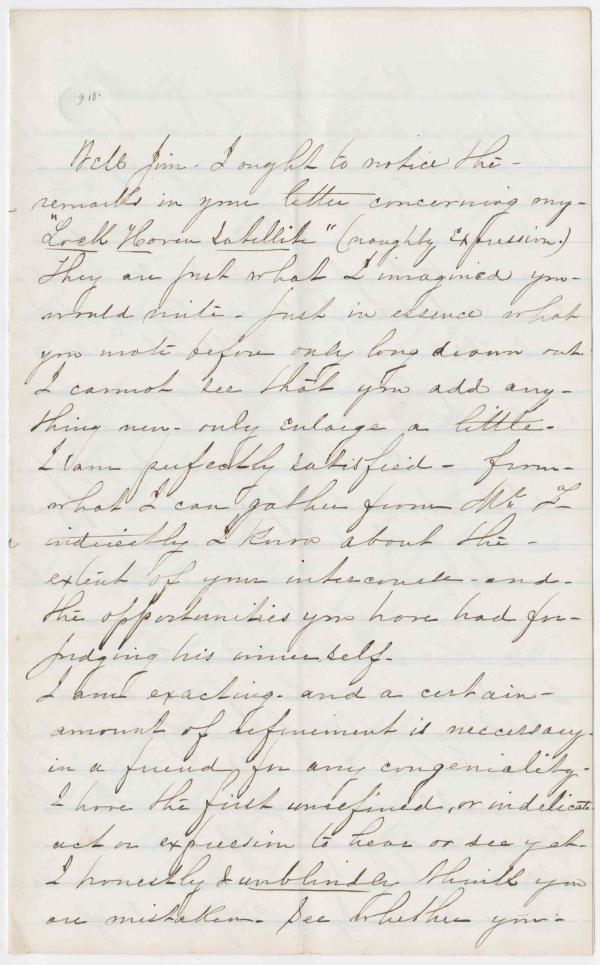 910.
Well Jim. I ought to notice the -
remarks in your letter concerning my -
"Lock Haven Satellite" (naughty Expression.)
They are just what I imagined you -
would write - just in essence what
you wrote before only long drawn out
I cannot see that you add any -
thing new - only enlarge a little -
I am perfectly satisfied - from -
what I can gather from Mr.
indirectly I know about the -
extent of your intercourse - and -
the opportunities you have had for -
judging his inner self -
I am exacting - and a certain -
amount of refinement is neccersary.
in a friend for any congeniality -
I have the first unrefined, or indelicate
act or expression to hear or see yet -
I honestly & unblindedly think you
are mistaken - See whether you -